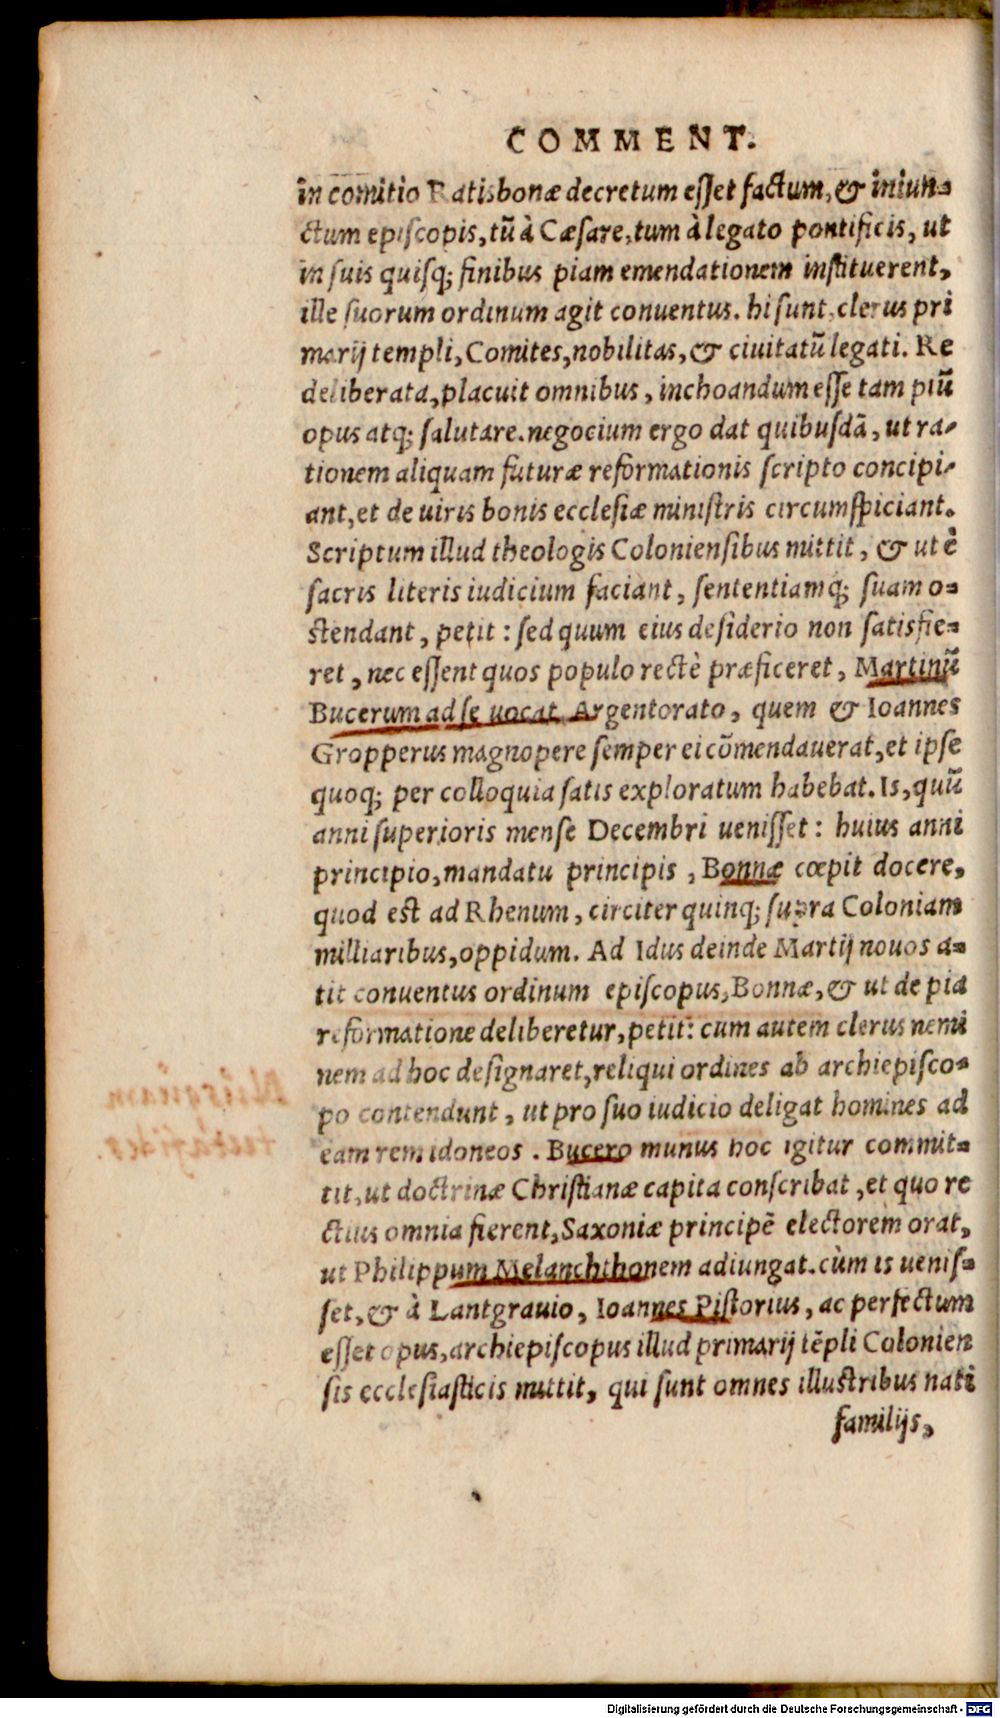 COMMENT.
in comitio Ratisbonæ decretum eſſet factum, & iniun-
ctum epiſcopis, tũ à Cæſare, tum à legato pontificis, ut
in ſuis quiſq; finibus piam emendationem inſtituerent,
ille ſuorum ordinum agit conuentus. hi ſunt, clerus pri
marij templi, Comites, nobilitas, & ciuitatũ legati. Re
deliberata, placuit omnibus, inchoandum eſſe tam piũ
opus atq; ſalutare. negocium ergo dat quibuſdã, ut ra-
tionem aliquam futuræ reformationis ſcripto concipi-
ant, et de uiris bonis eccleſiæ miniſtris circumſpiciant.
Scriptum illud theologis Colonienſibus mittit, & ut è
ſacris literis iudicium faciant, ſententiamq; ſuam o-
ſtendant, petit: ſed quum eius deſiderio non ſatisfie-
ret, nec eſſent quos populo rectè præficeret, Martinũ
Bucerum ad ſe uocat Argentorato, quem & Ioannes
Gropperus magnopere ſemper ei cõmendauerat, et ipſe
quoq; per colloquia ſatis exploratum habebat. Is, quũ
anni ſuperioris menſe Decembri ueniſſet: huius anni
principio, mandatu principis, Bonnæ cœpit docere,
quod est ad Rhenum, circiter quinq; ſupra Coloniam
milliaribus, oppidum. Ad Idus deinde Martij nouos a-
tit conuentus ordinum epiſcopus, Bonnæ, & ut de pia
reformatione deliberetur, petit: cum autem clerus nemi
nem ad hoc deſignaret, reliqui ordines ab archiepiſco-
po contendunt, ut pro ſuo iudicio deligat homines ad
eam rem idoneos. Bucero munus hoc igitur commit-
tit, ut doctrinæ Chriſtianæ capita conſcribat, et quo re
ctius omnia fierent, Saxoniæ principẽ electorem orat,
ut Philippum Melanchthonem adiungat. cùm is ueniſ-
ſet, & à Lantgrauio, Ioannes Piſtorius, ac perfectum
eſſet opus, archiepiſcopus illud primarij tẽpli Colonien
ſis eccleſiaſticis mittit, qui ſunt omnes illuſtribus nati
familijs,
Digitalisierung gefördert durch die Deutsche Forschungsgemeinschaft - DFG